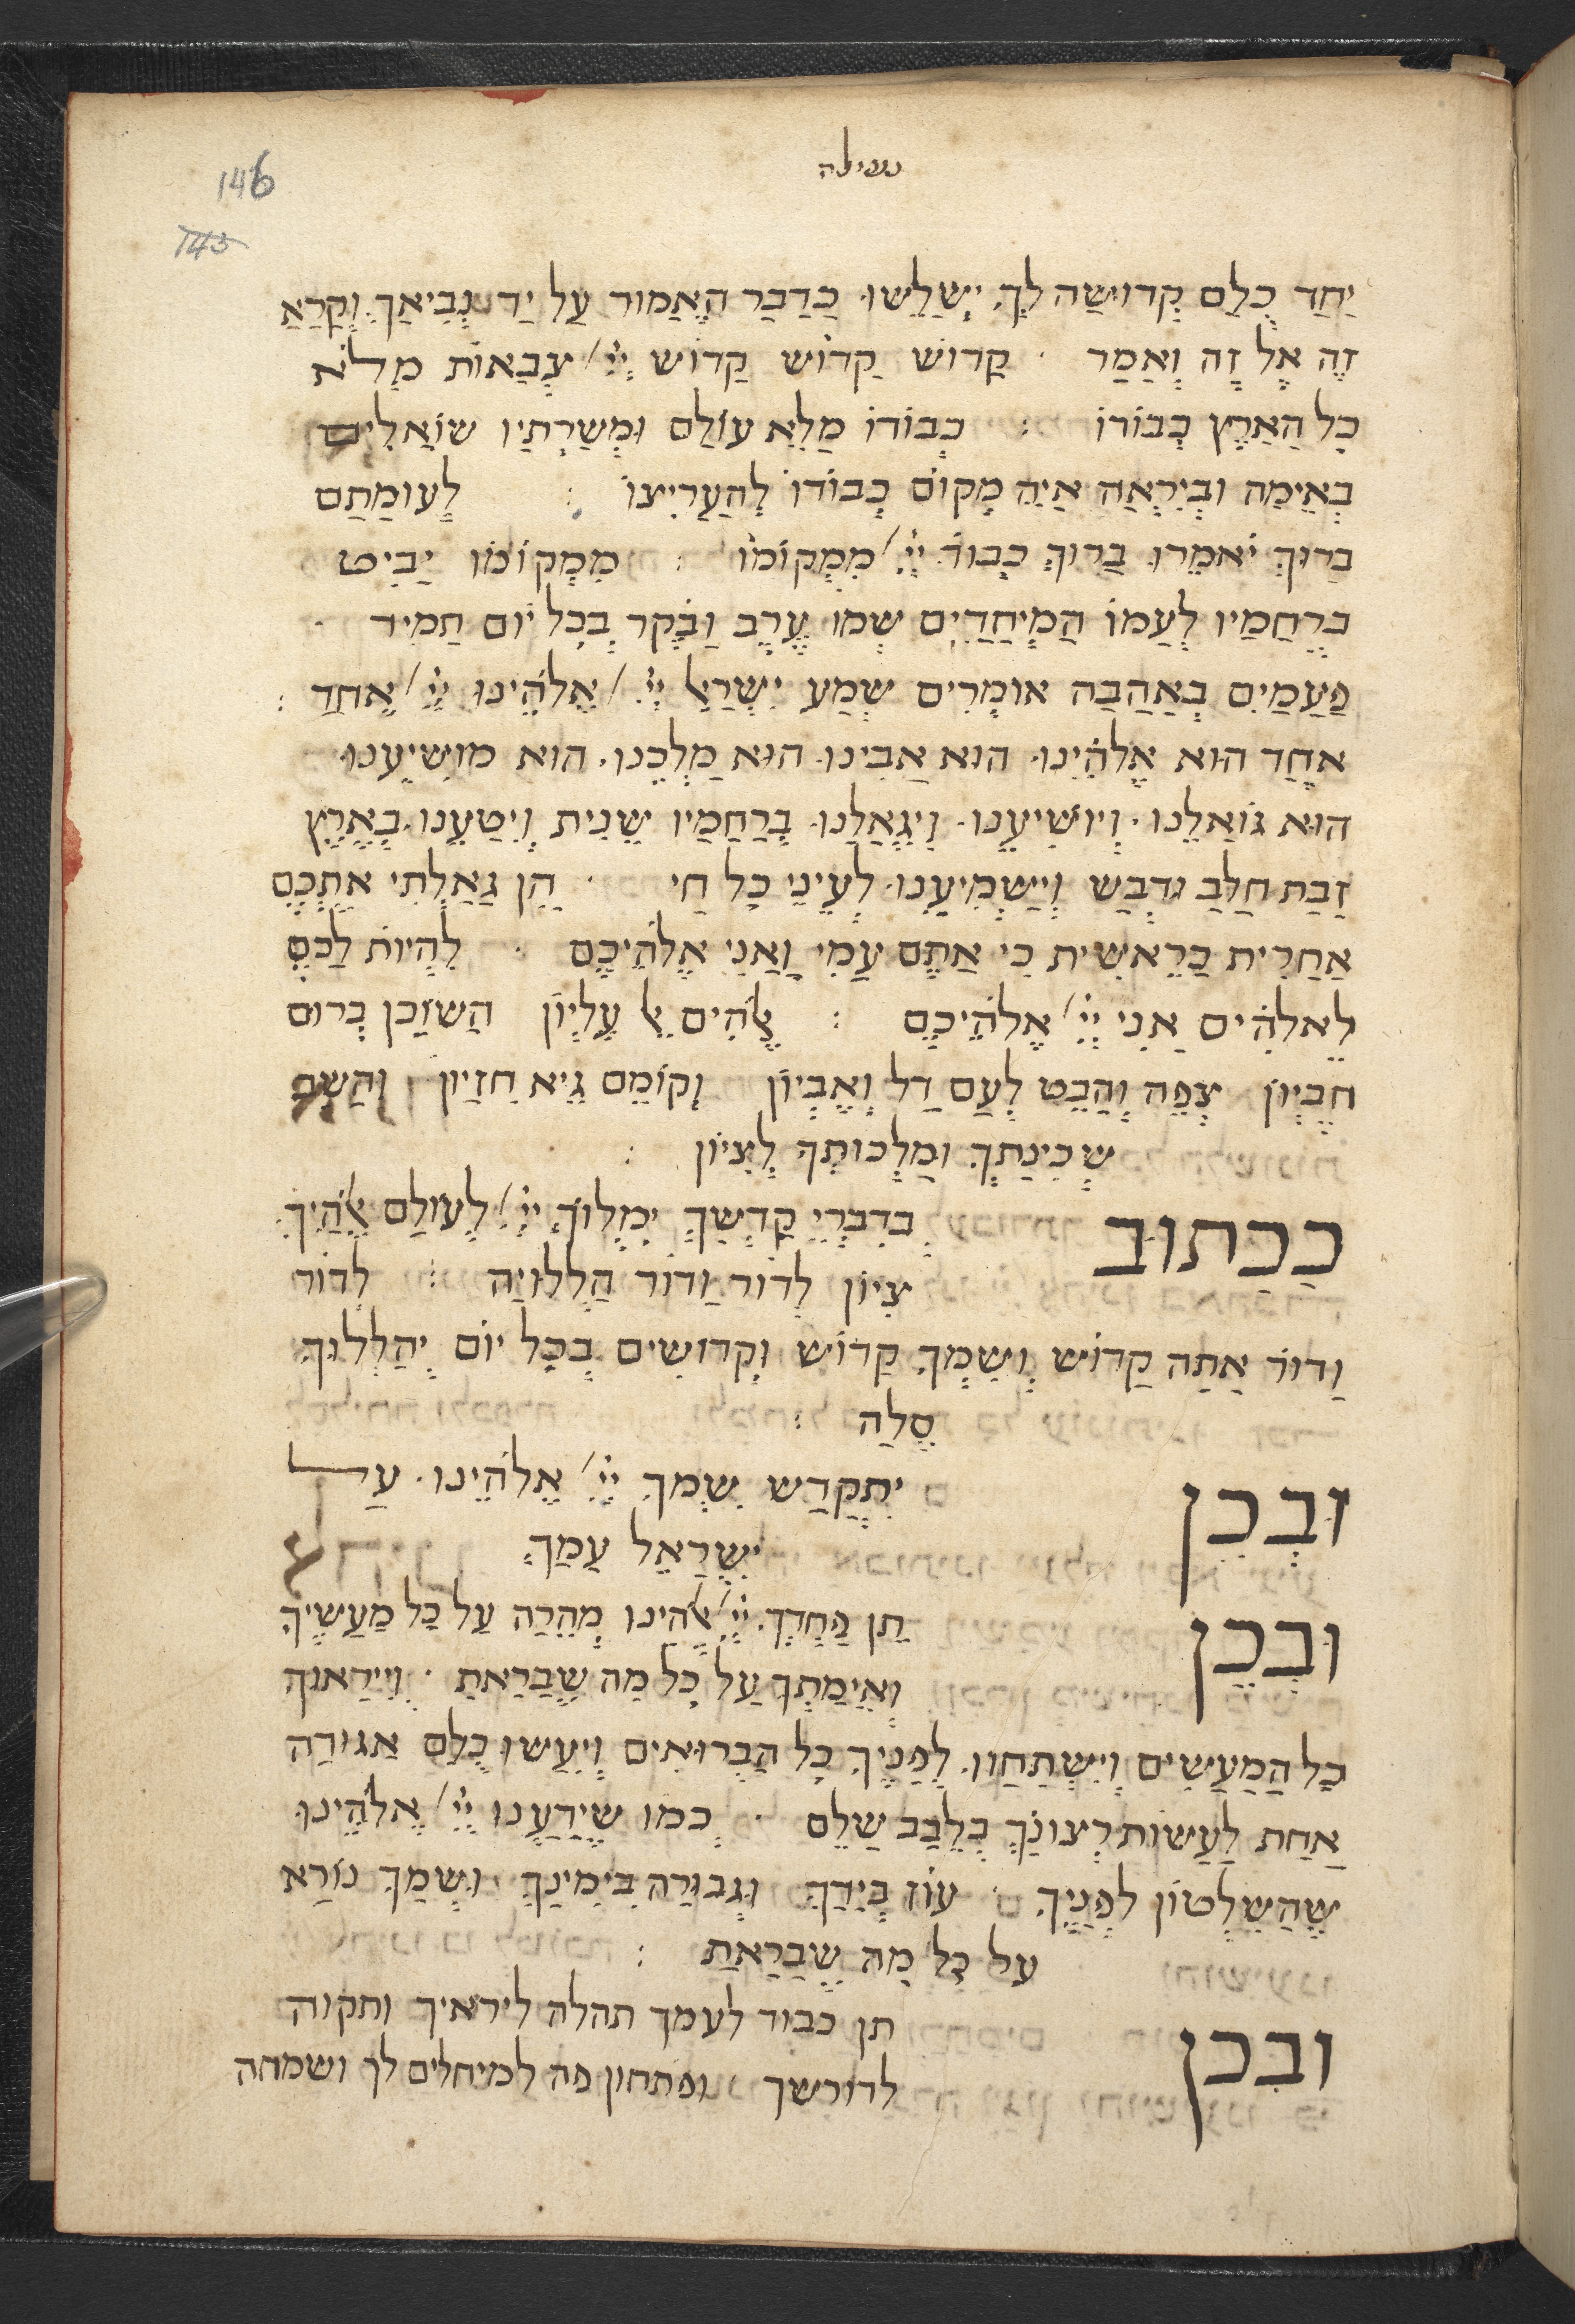 תפילה
146
143
יַחַד כֻלַם קְדוּשַה לְךָ יְשַלֵשוּ כַדַבַר הָאֲמוּר עַל יַד נְבִיאַךָ וְקַרַא
זֶה אֶל זֶה וְאַמַר · קַדוֹש קַדוֹש קַדוֹש יְיָ צְבַאוֹת מְלֹא
כָל הַאַרֶץ כְבוֹדוֹ : כְבוֹדוֹ מַלֵא עוֹלַם וּמְשַרְתַיו שוֹאֲלִים
בְאֵימַה וּבְיִרְאַה אַיֵה מְקוֹם כְבוֹדוֹ לְהַעֲרִיצוֹ : לְעוּמַתַם
בַרוּךְ יֹאמֵרוּ בַרוּךְ כְבוֹד יְיָ מִמְקוֹמוֹ : מִמְקוֹמוֹ יַבִיט
בְרַחֲמַיו לְעַמוֹ הַמְיַחֲדִים שְמוֹ עֶרֶב וַבֹקֶר בְכָל יוֹם תַמִיד ·
פַעֲמַיִם בְאַהֲבַה אוֹמְרִים שְמַע יִשְרַאֵל יְיָ אֱלֹהֵינוּ יְיָ אֶחַד :
אֶחַד הוּא אֱלֹהֵינוּ הוּא אַבִינוּ הוּא מַלְכֵנוּ הוּא מוֹשִיעֵנוּ
הוּא גוֹאֲלֵנוּ · וְיוֹשִיעֵנוּ וְיִגְאַלֵנוּ בְרַחֲמַיו שֵנִית וְיִטַעֵנוּ בְאֶרֶץ
זַבַת חַלַב וּדְבַש וְיַשְמִיעֵנוּ לְעֵינֵי כָל חַי · הֵן גַאַלְתִי אֶתְכֶם
אַחֲרִית כְרֵאשִית כִי אַתֶם עַמִי וַאֲנִי אֱלֹהֵיכֶם · לִהְיוֹת לַכֶם
לֵאלֹהִים אֲנִי יְיָ אֱלֹהֵיכֶם : אֱלֹהִים אֵל עֶלְיוֹן הַשוֹכֵן בְרוּם
חֶבְיוֹן צְפֵה וְהַבֵט לְעַם דַל וְאֶבְיוֹן וְקוֹמֵם גֵיא חִזַיוֹן וְהַשֵב
שְכִינַתְךָ וּמַלְכוּתְךָ לְצִיוֹן :
כַכַתוּב בְדִבְרֵי קַדְשְךָ יִמְלוֹךְ יְיָ לְעוֹלַם אֱלֹהַיִךְ
צִיוֹן לְדוֹר וַדוֹר הַלְלוּיַה : לְדוֹר
וַדוֹר אַתַה קַדוֹש וְשִמְךָ קַדוֹש וְקְדוֹשִים בְכָל יוֹם יְהַלְלוּךָ
סֶלַה :
וּבְכֵן יִתְקַדַש שִמְךָ יְיָ אֱלֹהֵינוּ עַל
יִשְרַאֵל עַמַךָ
וּבְכֵן תֵן פַחְדְךָ יְיָ אֱלֹהֵינוּ מְהֵרַה עַל כָל מַעֲשֶיךָ
וְאֵימַתְךָ עַל כָל מַה שֶבַרַאתַ · וְיִירַאוּךָ
כָל הַמַעֲשִים וְיִשְתַחֲווּ לְפַנֶיךָ כָל הַבְרוּאִים וְיֵעַשוּ כֻלַם אֲגוּדַה
אַחַת לַעֲשוֹת רְצוֹנְךָ בְלֵבַב שַלֵם · כְמוֹ שֶיַדַעְנוּ יְיָ אֱלֹהֵינוּ
שֶהַשִלְטוֹן לְפַנֶיךָ · עוֹז בְיַדְךָ וּגְבוּרַה בִימִינֶךָ וְשִמְךָ נוֹרַא
על כָל מַה שֶבַרַאתַ :
ובכן תן כבוד לעמך תהלה ליראיך ותקוה
לדורשך ופתחון פה למיחלים לך ושמחה